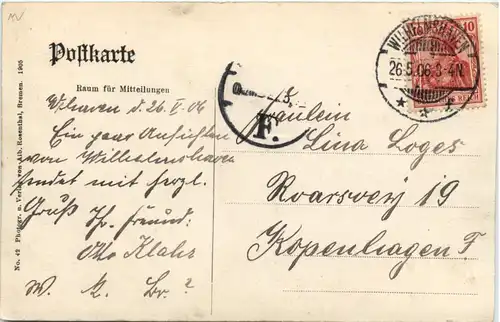 Postkarte
Raum für Mitteilungen
W'haven d. 26. V. 06
Ein paar Ansichten
von Wilhelmshaven
sendet mit herzl.
Gruß Ihr Freund:
Otto
W. Br.?
Fräulein
Lina Loges
Roarsvej 19
Kopenhagen F
WILHELMSHAVEN
26.5.06.3-4N.
10
F.
No. 42 Photogr. u. Verlag von Alb. Rosenthal, Bremen. 1905